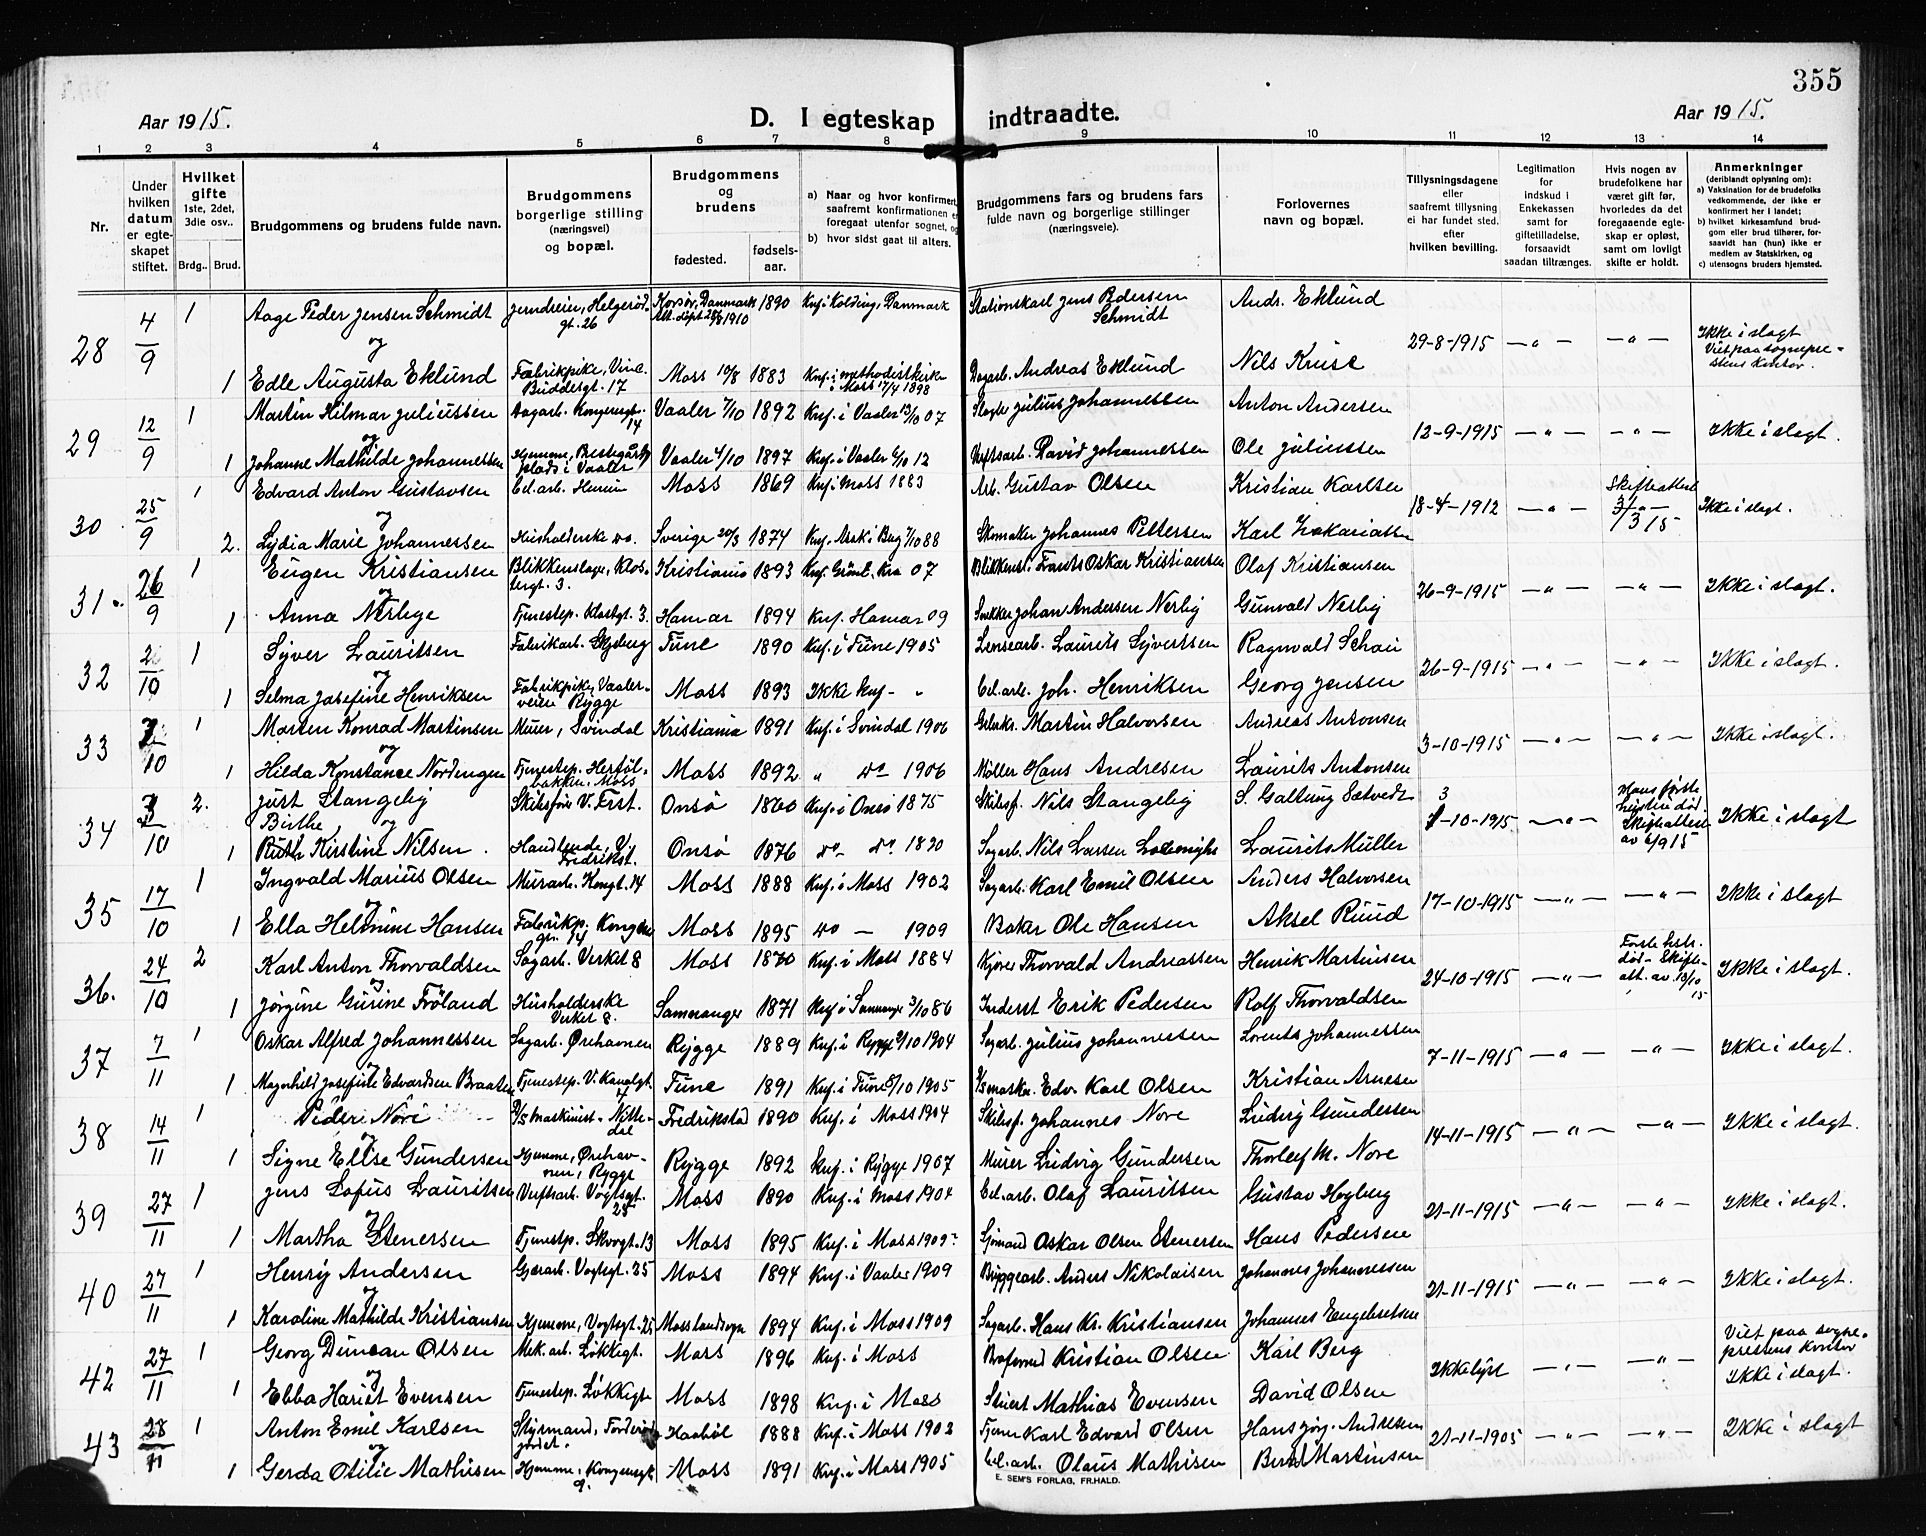 355
Aar 1915.
D. I egteskap indtraadte.
Aar 1915.
1 2 3 4 5 6 7 8 9 10 11 12 13 14
Nr.
Under hvilken datum er egteskapet stiftet.
Hvilket gifte 1ste, 2det, 3die osv..
Brdg.. Brud.
Brudgommens og brudens fulde navn.
Brudgommens borgerlige stilling (næringsvei) og bopæl.
Brudgommens og brudens
fødested. fødsels-aar.
a) Naar og hvor konfirmert, saafremt konfirmationen er foregaat utenfor sognet, og
b) hvor sidst gaat til alters.
Brudgommens fars og brudens fars fulde navn og borgerlige stillinger (næringsveie).
Forlovernes navn og bopæl.
Tillysningsdagene eller saafremt tillysning ei har fundet sted, efter hvilken bevilling.
Legitimation for indskud i Enkekassen samt for giftetilladelse, forsaavidt saadan tiltrænges.
Hvis nogen av brudefolkene har været gift før, hvorledes da det foregaaende egteskap er opløst, samt om lovligt skifte er holdt.
Anmerkninger (deriblandt oplysning om):
a) Vaksination for de brudefolks vedkommende, der ikke er konfirmert her i landet;
b) hvilket kirkesamfund brudgom eller brud tilhører, forsaavidt han (hun) ikke er medlem av Statskirken, og
c) utensogns bruders hjemsted.
28 4/9 1 Aage Peder Jensen Schmidt Jerndreier, Helgerødgt. 26 Korsør, Danmark 1890 Knf. i Kolding, Danmark Stationskarl Jens Pedersen Schmidt Andr. Eklund 29-8-1915 — " — — " — Ikke i slagt Viet paa sogneprestens kontor.
og
1 Edle Augusta Eklund Fabrikpike, Vinc. Buddesgt. 17 Moss 10/8 1883 Knf. i methodistkirke i Moss 17/4 1898 Dagarb. Andreas Eklund Nils Kruse
29 12/9 1 Martin Hilmar Juliussen Dagarb. Kongensgt. 14 Vaaler 7/10 1892 Knf. i Vaaler 13/10 07 Slagter Julius Johannessen Anton Andersen 12-9-1915 — " — — " — Ikke i slagt.
og
1 Johanne Mathilde Johannessen Hjemme, plads i Vaaler Vaaler 4/10 1897 Knf. i Vaaler 6/10 12 Verftsarb. David Johannessen Ole Juliussen
30 25/9 1 Edvard Anton Gustavsen Cel. arb. Henum Moss 1869 Knf. i Moss 1883 Arb. Gustav Olsen Kristian Karlsen 18-4-1912 — " — Skifteattest 3/3 15 Ikke i slagt.
og
2. Lydia Marie Johannessen Husholderske do. Sverige 20/3 1874 Knf. Ask i Bug 7/10 88 Skomaker Johannes Pettersen Karl Zakariassen
31. 26/9 1 Eugen Kristiansen Blikkenslager, Klostergt. 3. Kristiania 1893 Knf. Grønl. Kra 07 Blikkensl. Frants Oskar Kristiansen Olaf Kristiansen 26-9-1915 — " — — " — Ikke i slagt.
og
1 Anna Nerlege Tjenestep. Klostgt. 3. Hamar 1894 Knf. Hamar 09 Snekker Johan Andersen Nerlig Gunvald Nerlig
32 2/10 1 Syver Lauritsen Fabrikarb. Skjeberg Tune 1890 Knf. i Tune 1905 Lensearb. Laurits Syvertsen Ragnvald Schau 26-9-1915 — " — — " — Ikke i slagt.
og
1 Selma Josefine Henriksen Fabrikpike, Vaalerveien Rygge Moss 1893 Ikke knf. - " Cel. arb. Joh. Henriksen Georg Jensen
33 3/10 1 Marten Konrad Martinsen Murer, Svindal Kristiania 1891 Knf. i Svindal 1906 Martin Halvorsen Andreas Antonsen 3-10-1915 — " — — " — Ikke i slagt.
og
1 Hilda Konstance Nordengen Tjenestep. Moss Moss 1892 " do 1906 Møller Hans Andresen Laurits Antonsen
34 3/10 2. Just Stangeby Skibsfør. V. Frst. Onsø 1860 Knf. i Onsø 1875 Skibsf. Nils Stangebig S. Galtung Sætvedt 3-10-1915 — " — Hans første hustru død Skifteattest av 6/9 15 Ikke i slagt
Birthe og
1 Ruth Kirstine Nilsen. Handlende, V. Fredrikst. Onsø 1876 do do 1890 Sagarb. Nils Larsen Laurits Müller
35 17/10 1 Ingvald Marius Olsen Murarb. Kongt. 14 Moss 1888 Knf. i Moss 1902 Sagarb. Karl Emil Olsen Anders Halvorsen 17-10-1915 — " — — " — Ikke i slagt
og
1 Ella Helmine Hansen Fabrikp. Kongens gt. 14 Moss 1895 do — 1909 Baker Ole Hansen Aksel Ruud
36. 24/10 2 Karl Anton Thorvaldsen Sagarb. Verket 8 Moss 1870 Knf. i Moss 1884 Kjører Thorvald Andreassen Henrik Martinsen 24-10-1915 — " — Første hstr. død - Skifteatt. av 13/10 15 Ikke i slagt.
og
1 Jørgine Gurine Frøland Husholderske Verket 8. Samnanger 1871 Knf i Samnanger 3/10 86 Inderst Erik Pedersen Rolf Thorvaldsen
37 7/11 1 Oskar Alfred Johannessen Sagarb. Ørehavnen Rygge 1889 Knf. i Rygge 9/10 1904 Sagarb. Julius Johannessen Lorents Johannessen 7-11-1915 — " — — " — Ikke i slagt.
1 Magnhild Josefine Edvardsen Braaten Tjenestep. V. Kanalgt. 4 Tune 1891 Knf. i Tune 8/10 1905 Edv. Karl Olsen Kristian Arnesen
38 14/11 1 Peder Nore D/S maskinist. Nittedal Fredrikstad 1890 Knf. i Moss 1904 Skibsf. Johannes Nore Ludvig Gundersen 14-11-1915 — " — — " — Ikke i slagt.
og
1 Signe Elise Gundersen Hjemme, Ørehavnen, Rygge Rygge 1892 Knf. i Rygge 1907 Murer Ludvig Gundersen Thorleif M. Nore
39 27/11 1 Jens Lofus Lauritsen Verftsarb. Vogtsgt. 25 Moss 1890 Knf. i Moss 1904 Cel. arb. Olaf Lauritsen Gustav Høgberg 21-11-1915 — " — — " — Ikke i slagt.
og
1 Martha Stenersen Tjenestp. Skovgt. 13 Moss 1895 Knf. i Moss 1909 Sjømand Oskar Olsen Stenersen Hans Pedersen
40 27/11 1 Henry Andersen Gjærarb. Vogtsgt. 25 Moss 1894 Knf. i Vaaler 1909 Bryggearb. Anders Nikolaisen Johannes Johannessen 21-11-1915 — " — — " — Ikke i slagt.
og
1 Karoline Mathilde Kristiansen Hjemme, Vogtsgt. 25 Moss landsogn 1894 Knf. i Moss 1909 Sagarb. Hans Kr. Kristiansen Johannes Engebretsen
42 27/11 1 Georg Duncan Olsen Mek. arb. Løkkegt. Moss 1896 Knf. i Moss Kristian Olsen Karl Berg Ikke lyst — " — — " — Viet paa sogneprestens kontor Ikke i slagt.
og
1 Ebba Hariet Evensen Tjenestep. Løkkegt Moss 1898 Knf. i Moss Stuert Mathias Evensen David Olsen
43 28/11 1 Anton Emil Karlsen Styrmand, Haabøl 1888 Knf. i Moss 1902 Karl Edvard Olsen Hans Jørg. Andresen 21-11-1905 — " — — " — Ikke i slagt
og
1 Gerda Otilie Mathisen Hjemme, Kongensgt 9. Moss 1891 Knf. i Moss 1905 Cel. arb. Olaus Mathisen Bernh Martinsen
E. SEM'S FORLAG, FR.HALD.